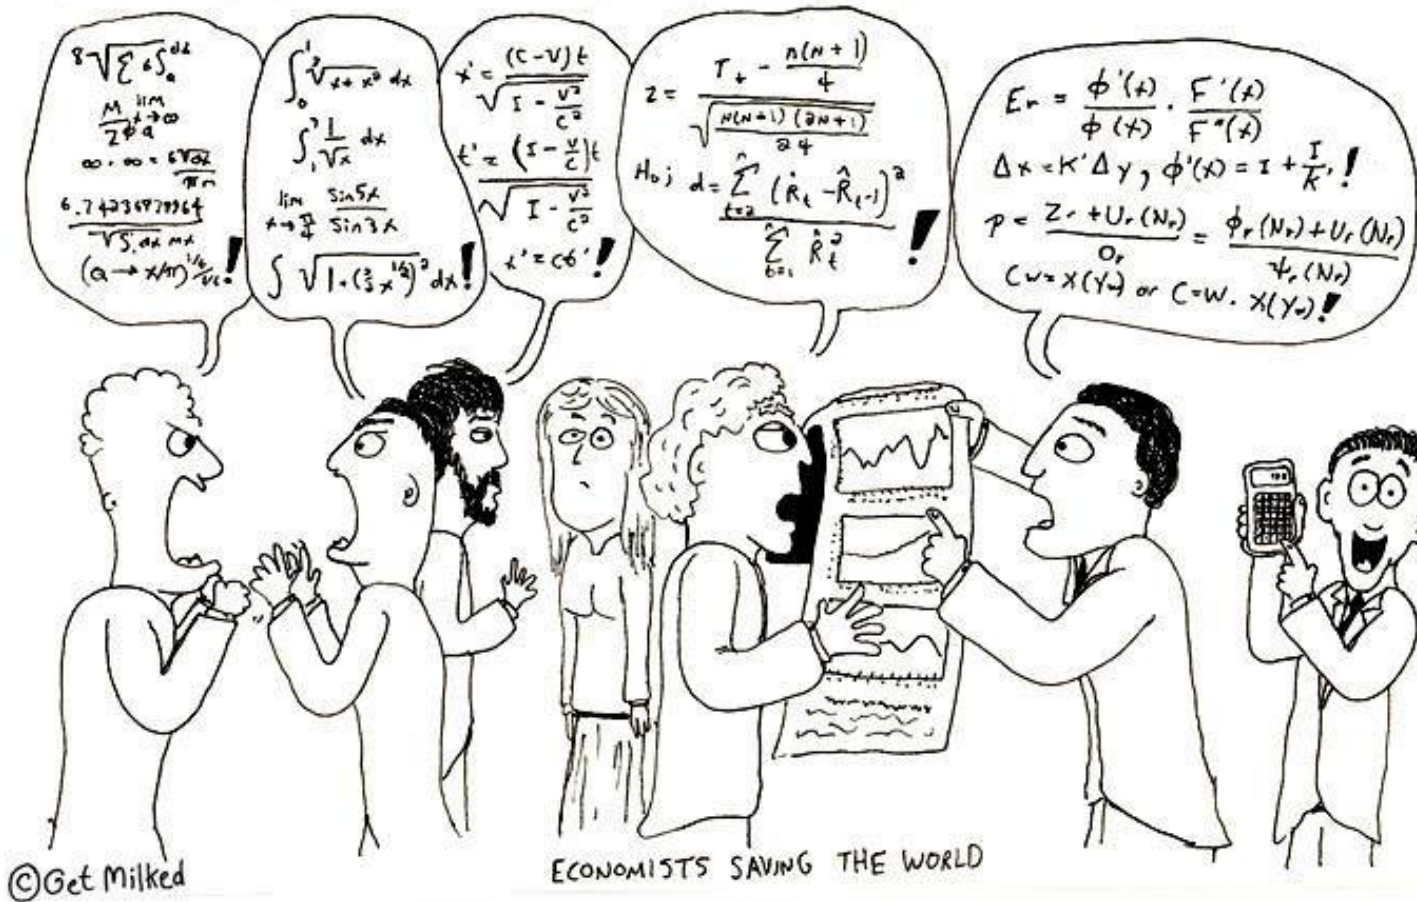 8√{Σ 6∫ₐ dx
M/2ΦQ lim x→∞
∞·∞ = 6√az/πr
√∫.dx mx
(a → x/π)
!
∫₀¹ ³√(x+x²) dx
∫₁⁷ 1/√x dx
lim x→π/4 sin5x/sin3x
∫ √(1+(3/2 x^(1/2))² dx!
x' = (C-V)t / √(I - v²/c²)
t' = (I - v/c)t / √(I - v²/c²)
x' = ct'!
z = (T₊ - n(n+1)/4) / √(n(n+1)(2n+1)/24)
H₀; d = Σ (R̂t - R̂t-1)² / Σ R̂t² !
Er = Φ'(x)/Φ(x) · F'(x)/F"(x)
Δx = K'Δy, Φ'(x) = I + I/K, !
P = (Zr + Ur(Nr))/Or = (Φr(Nr) + Ur(Nr))/Ψr(Nr)
Cw = X(Yw) or C = W. X(Yw)!
©Get Milked
ECONOMISTS SAVING THE WORLD